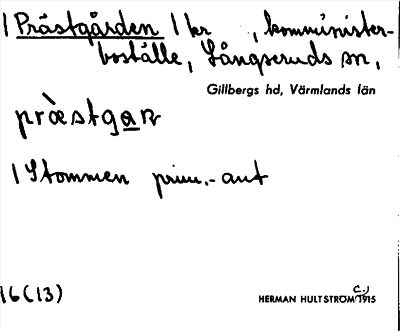 | Prästgården | kr , komminister-
boställe, Långseruds sn,
Gillbergs hd, Värmlands län
præ̀stga̲n
| Stommen prim.- ant
16(13)
HERMAN HULTSTRÖM C:) 1915